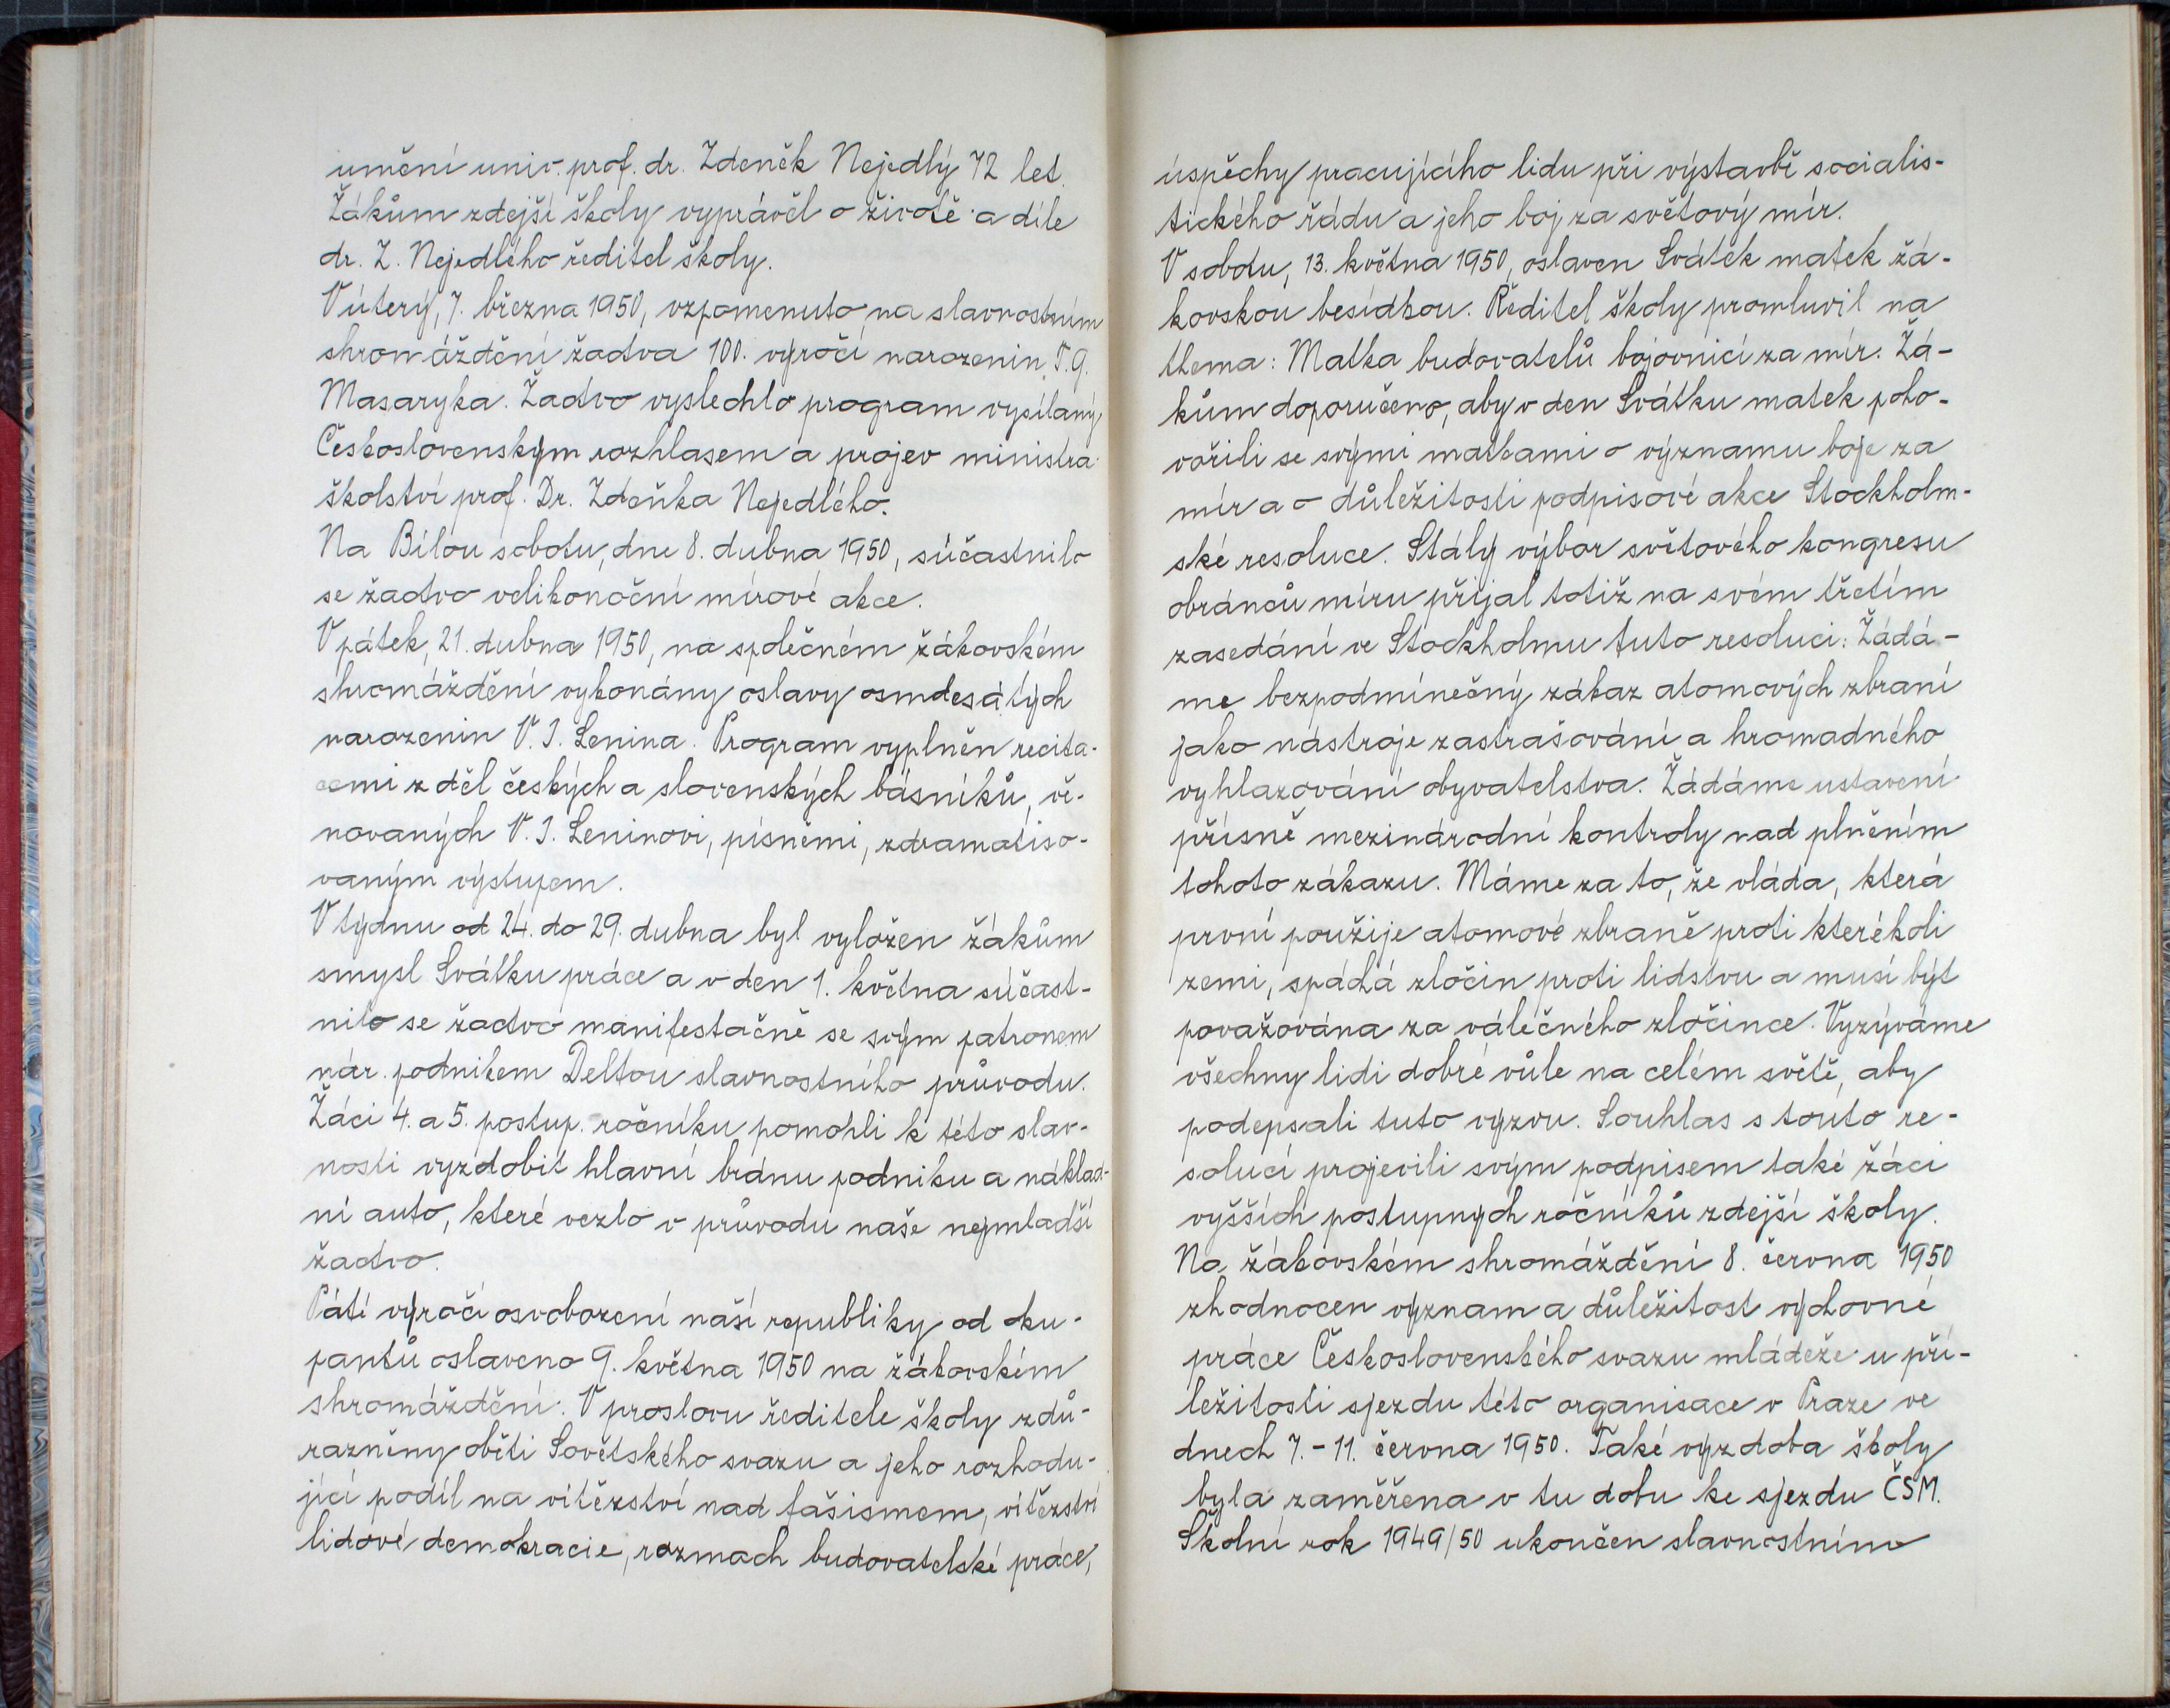 umění univ. prof. dr. Zdeněk Nejedlý 72 let.
Žákům zdejší školy vyprávěl o životě a díle
dr. Z. Nejedlého ředitel školy.
V úterý, 7. března 1950, vzpomenuto na slavnostním
shromáždění žactva 100. výročí narozenin T. G.
Masaryka. Žactvo vyslechlo program vysílaný
Československým rozhlasem a projev ministra
školství prof. Dr. Zdeňka Nejedlého.
Na Bílou sobotu, dne 8. dubna 1950, súčastnilo
se žactvo velikonoční mírové akce.
V pátek, 21. dubna 1950, na společném žákovském
shromáždění vykonány oslavy osmdesátých
narozenin V. I. Lenina. Program vyplněn recita-
cemi z děl českých a slovenských básníků, vě-
novaných V. I. Leninovi, písněmi, zdramatiso-
vaným výstupem.
V týdnu od 24. do 29. dubna byl vyložen žákům
smysl Svátku práce a v den 1. května súčast-
nilo se žactvo manifestačně se svým patronem
nár. podnikem Deltou slavnostního průvodu.
Žáci 4. a 5. postup. ročníku pomohli k této slav-
nosti vyzdobit hlavní bránu podniku a náklad-
ní auto, které vezlo v průvodu naše nejmladší
žactvo.
Páté výročí osvobození naší republiky od oku-
pantů oslaveno 9. května 1950 na žákovském
shromáždění. V proslovu ředitele školy zdů-
razněny oběti Sovětského svazu a jeho rozhodu-
jící podíl na vítězství nad fašismem, vítězství
lidové demokracie, rozmach budovatelské práce,
úspěchy pracujícího lidu při výstavbě socialis-
tického řádu a jeho boj za světový mír.
V sobotu, 13. května 1950, oslaven Svátek matek žá-
kovskou besídkou. Ředitel školy promluvil na
thema: Matka budovatelů bojovnicí za mír. Žá-
kům doporučeno, aby v den Svátku matek poho-
vořili se svými matkami o významu boje za
mír a o důležitosti podpisové akce Stockholm-
ské resoluce. Stálý výbor světového kongresu
obránců míru přijal totiž na svém třetím
zasedání ve Stockholmu tuto resoluci: Žádá-
me bezpodmínečný zákaz atomových zbraní
jako nástroje zastrašování a hromadného
vyhlazování obyvatelstva. Žádáme ustavení
přísné mezinárodní kontroly nad plněním
tohoto zákazu. Máme za to, že vláda, která
první použije atomové zbraně proti kterékoli
zemi, spáchá zločin proti lidstvu a musí být
považována za válečného zločince. Vyzýváme
všechny lidi dobré vůle na celém světě, aby
podepsali tuto výzvu. Souhlas s touto re-
solucí projevili svým podpisem také žáci
vyšších postupných ročníků zdejší školy.
Na žákovském shromáždění 8. června 1950
zhodnocen význam a důležitost výchovné
práce Československého svazu mládeže u pří-
ležitosti sjezdu této organisace v Praze ve
dnech 7. - 11. června 1950. Také výzdoba školy
byla zaměřena v tu dobu ke sjezdu ČSM.
Školní rok 1949/50 ukončen slavnostním